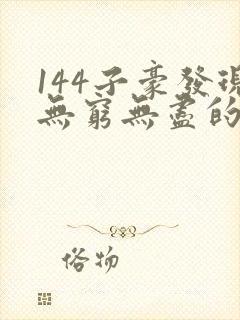 144子豪發現
無窮無盡的
俗物